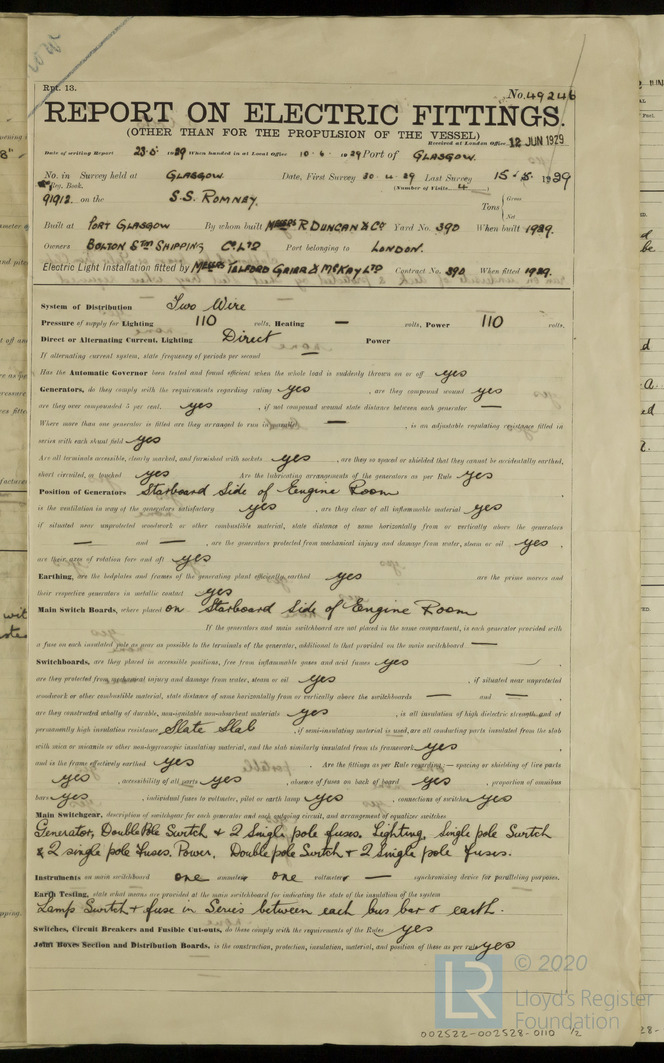 Rpt. 13.
No. 49246
REPORT ON ELECTRIC FITTINGS.
(OTHER THAN FOR THE PROPULSION OF THE VESSEL)
Received at London Office 12 JUN 1929
Date of writing Report 23.5. 1929 When handed in at Local Office 10.6. 1929 Port of GLASGOW.
No. in Survey held at GLASGOW. Date, First Survey 30.4.29 Last Survey 15.5.1929
Reg. Book. (Number of Visits 4)
91912. on the S.S. ROMNEY. Tons { Gross
Net
Built at PORT GLASGOW By whom built MESSRS R DUNCAN & CO Yard No. 390 When built 1929.
Owners BOLTON STM SHIPPING CO LTD Port belonging to LONDON.
Electric Light Installation fitted by MESSRS TELFORD GRIER & McKAY LTD Contract No. 390 When fitted 1929.
System of Distribution Two Wire
Pressure of supply for Lighting 110 volts, Heating — volts, Power 110 volts.
Direct or Alternating Current, Lighting Direct Power
If alternating current system, state frequency of periods per second —
Has the Automatic Governor been tested and found efficient when the whole load is suddenly thrown on or off yes
Generators, do they comply with the requirements regarding rating yes , are they compound wound yes
are they over compounded 5 per cent. yes , if not compound wound state distance between each generator —
Where more than one generator is fitted are they arranged to run in parallel — , is an adjustable regulating resistance fitted in
series with each shunt field yes
Are all terminals accessible, clearly marked, and furnished with sockets yes , are they so spaced or shielded that they cannot be accidentally earthed,
short circuited, or touched yes Are the lubricating arrangements of the generators as per Rule yes
Position of Generators Starboard Side of Engine Room
is the ventilation in way of the generators satisfactory yes , are they clear of all inflammable material yes
if situated near unprotected woodwork or other combustible material, state distance of same horizontally from or vertically above the generators
— and — , are the generators protected from mechanical injury and damage from water, steam or oil yes ,
are their axes of rotation fore and aft yes
Earthing, are the bedplates and frames of the generating plant efficiently earthed yes are the prime movers and
their respective generators in metallic contact yes
Main Switch Boards, where placed on Starboard Side of Engine Room
If the generators and main switchboard are not placed in the same compartment, is each generator provided with
a fuse on each insulated pole as near as possible to the terminals of the generator, additional to that provided on the main switchboard —
Switchboards, are they placed in accessible positions, free from inflammable gases and acid fumes yes ,
are they protected from mechanical injury and damage from water, steam or oil yes , if situated near unprotected
woodwork or other combustible material, state distance of same horizontally from or vertically above the switchboards — and —
are they constructed wholly of durable, non-ignitable non-absorbent materials yes , is all insulation of high dielectric strength and of
permanently high insulation resistance Slate Slab , if semi-insulating material is used, are all conducting parts insulated from the slab
with mica or micanite or other non-hygroscopic insulating material, and the slab similarly insulated from its framework yes ,
and is the frame effectively earthed yes . Are the fittings as per Rule regarding:— spacing or shielding of live parts
yes , accessibility of all parts yes , absence of fuses on back of board yes , proportion of omnibus
bars yes , individual fuses to voltmeter, pilot or earth lamp yes , connections of switches yes
Main Switchgear, description of switchgear for each generator and each outgoing circuit, and arrangement of equalizer switches
Generator, Double Pole Switch & 2 Single pole fuses. Lighting, Single pole Switch
& 2 single pole fuses. Power. Double pole Switch & 2 Single pole fuses.
Instruments on main switchboard one ammeter one voltmeter — synchronising device for paralleling purposes.
Earth Testing, state what means are provided at the main switchboard for indicating the state of the insulation of the system
Lamp Switch & fuse in Series between each bus bar & earth.
Switches, Circuit Breakers and Fusible Cut-outs, do these comply with the requirements of the Rules yes
Joint Boxes Section and Distribution Boards, is the construction, protection, insulation, material, and position of these as per rule yes
© 2020
Lloyd's Register
Foundation
LR
002522-002528-0110 1/2